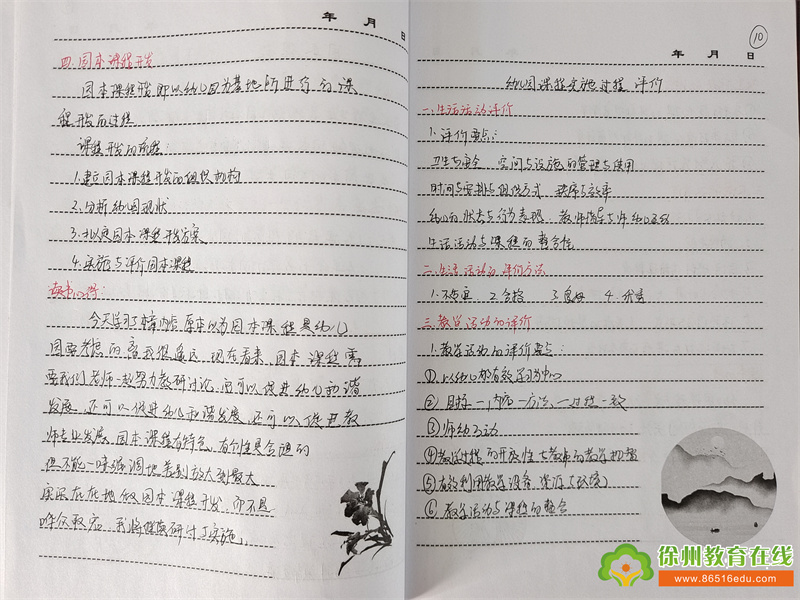 年 月 日
四.园本课程开发
园本课程开发即以幼儿园为基地所进行的课
程开发的过程
课程开发的流程:
1.建立园本课程开发的组织机构
2.分析幼儿园现状
3.拟定园本课程开发方案
4.实施与评价园本课程
读书心得:
今天学习了本章内容 原本以为园本课程是幼儿
园要考虑的 离我很遥远 现在看来 园本课程需
要我们老师一起努力教研讨论 既可以促进幼儿和谐
发展,还可以促进幼儿和谐发展,还可以促进教
师专业发展.园本课程有特色,有个性是合理的
但不能一味强调地差别放大到最大
实实在在地做园本课程开发,而不是
哗众取宠
10
年 月 日
幼儿园课程实施过程评价
一.生活活动评价
1.评价要点:
卫生与安全 空间与设施的管理与使用
时间安排与组织方式 秩序与效率
幼儿的状态与行为表现 教师指导与师幼互动
生活活动与课程的整合性
二.生活活动的评价方法
1.不适宜 2.合格 3.良好 4.优秀
三.教学活动的评价
1.教学活动的评价要点:
①以幼儿的有效学习为中心
②目标一内容一方法一过程一致
③师幼互动
④教学过程的开放性与教师的教学机智
⑤有效利用教学设备、资源(环境)
⑥教学活动与课程的整合
徐州教育在线
www.86516edu.com